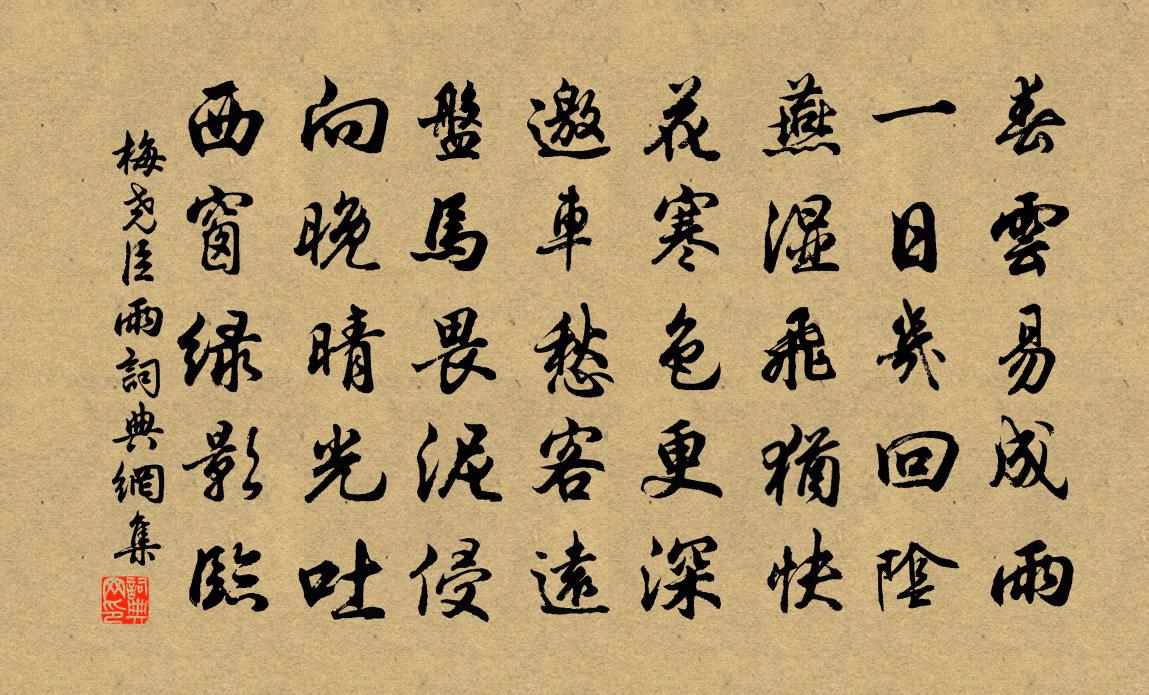 春雲易成雨
一日幾回陰
燕濕飛猶快
花寒色更深
邀車愁客遠
盤馬畏泥侵
向晚晴光吐
西窗绿影臨
梅堯臣雨詞典網集
詞典网印